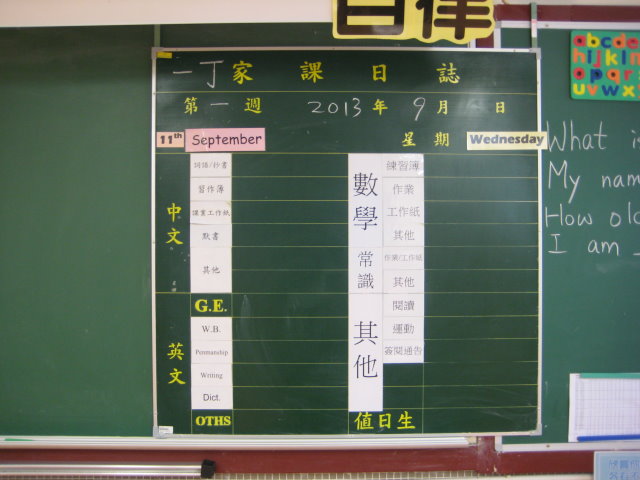 自律
一丁家課日誌
第一週 2013年9月 日
11th September 星期 Wednesday
中文
詞語/抄書
習作簿
課業工作紙
默書
其他
G.E.
英文
W.B.
Penmanship
Writing
Dict.
OTHS
數學
練習簿
作業
工作紙
其他
常識
作業/工作紙
其他
其他
閱讀
運動
簽閱通告
值日生
abcde
hijkl
opqr
uvwx
What
My nam
How old
I am